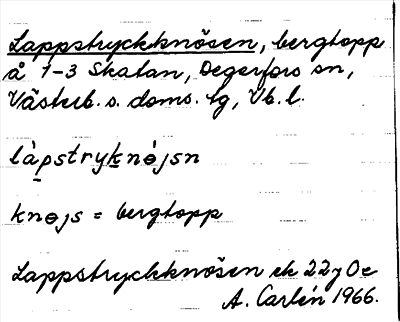 Lappstryckknösen, bergtopp
å 1-3 Skatan, Degerfors sn,
Västerb. s. doms. tg, Vb. l.
làpstryknɵ́jsn
knɵjs = bergtopp
Lappstryckknösen ek 22y Oe
A. Carlén 1966.